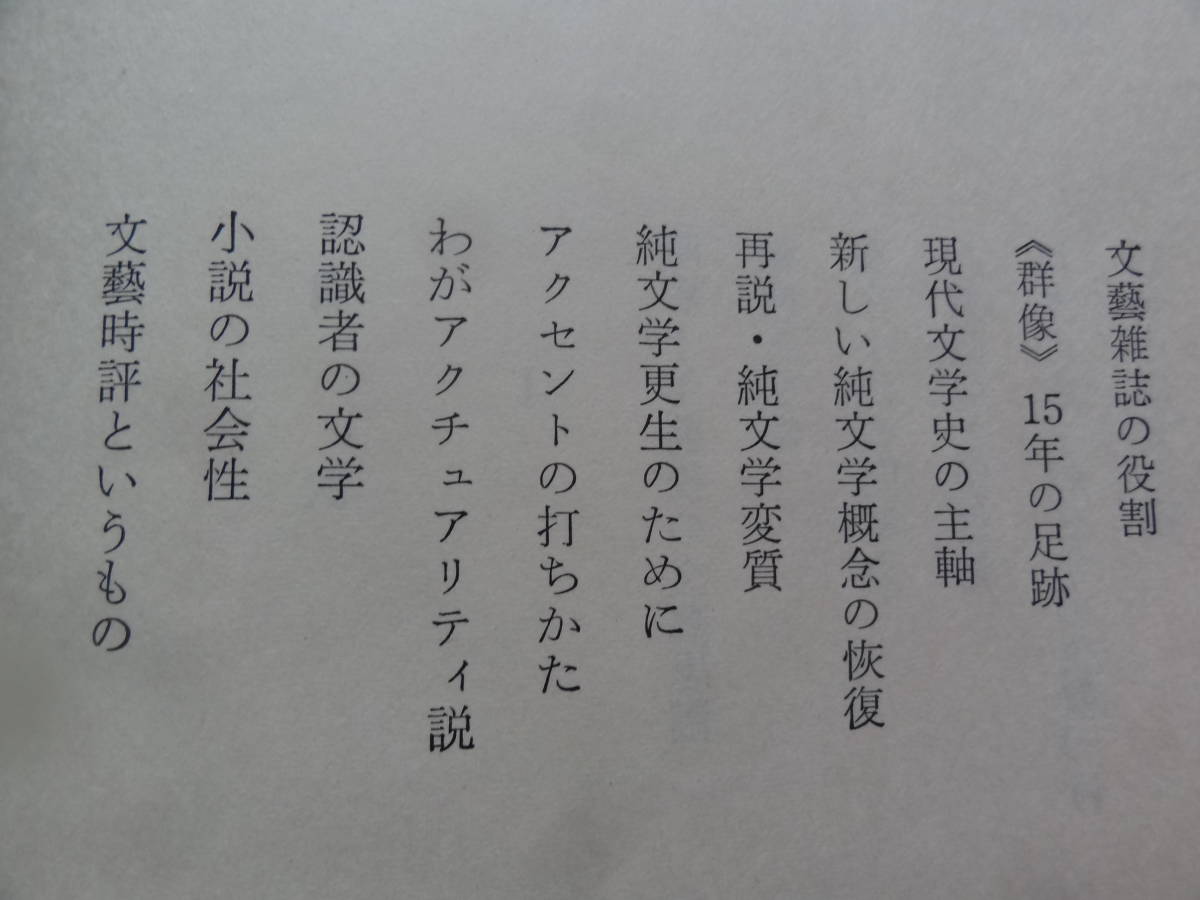 文藝雑誌の役割
《群像》15年の足跡
現代文学史の主軸
新しい純文学概念の恢復
再説・純文学変質
純文学更生のために
アクセントの打ちかた
わがアクチュアリティ説
認識者の文学
小説の社会性
文藝時評というもの